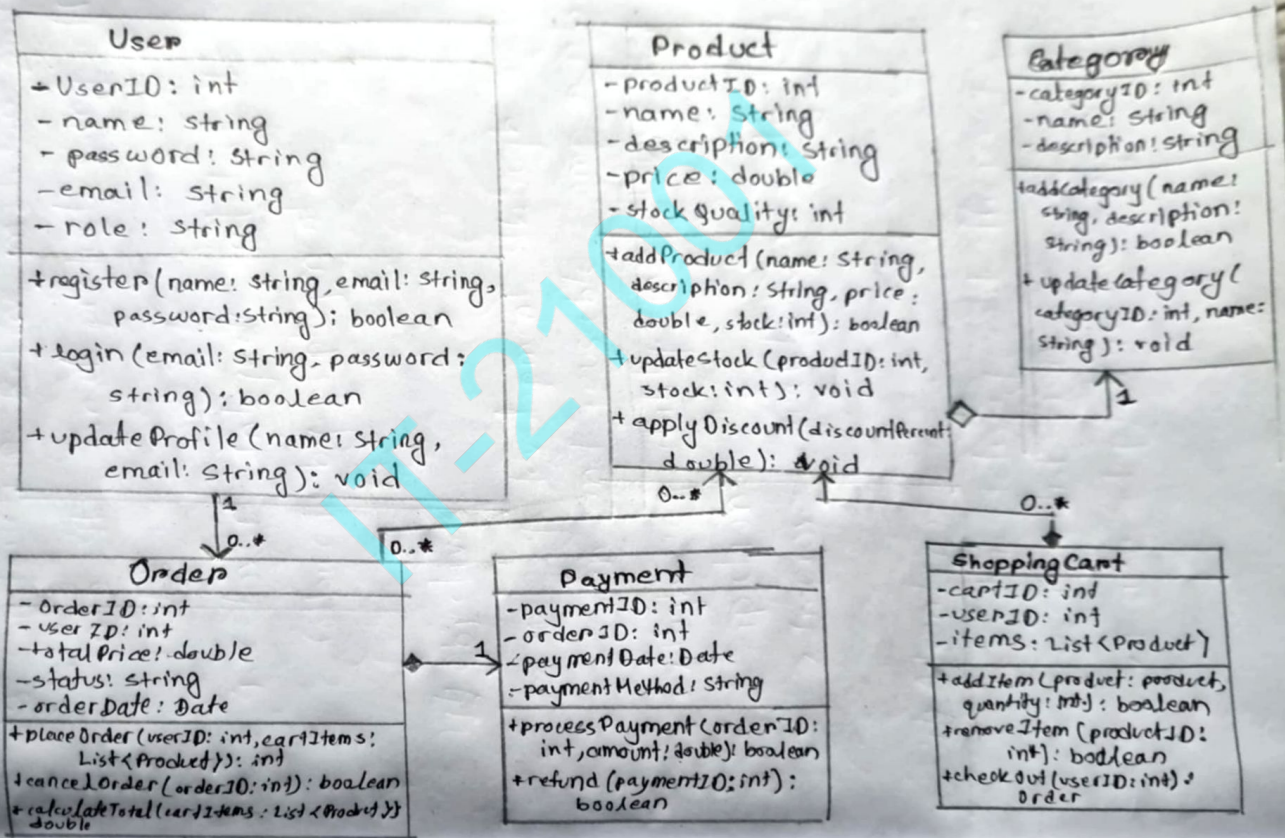 User
+ UserID: int
- name: string
- password: string
- email: string
- role: string
+register(name: string, email: string,
password:string): boolean
+login(email: string, password:
string): boolean
+updateProfile(name: string,
email: string): void
Product
-productID: int
-name: string
-description: string
-price: double
-stockQuality: int
+addProduct(name: string,
description: string, price:
double, stock:int): boolean
+updateStock(productID: int,
stock: int): void
+applyDiscount(discountPercent:
double): void
Category
-categoryID: int
-name: string
-description: string
+addCategory(name:
string, description:
string): boolean
+ updateCategory(
categoryID: int, name:
string): void
1
1
0..*
0..*
0..*
0..*
Order
- OrderID: int
- user ID: int
-totalPrice: double
-status: string
- orderDate: Date
+placeOrder(userID: int, cartItems:
List<Product>): int
+cancelOrder(orderID: int): boolean
+calculateTotal(cartItems: List<Product>)
double
1
Payment
-paymentID: int
-orderID: int
-paymentDate: Date
-paymentMethod: string
+processPayment(orderID:
int, amount: double): boolean
+refund(paymentID: int):
boolean
ShoppingCart
-cartID: int
-userID: int
-items: List<Product>
+addItem(product: product,
quantity: int): boolean
+removeItem(productID:
int): boolean
+checkout(userID: int):
Order
IT-21001